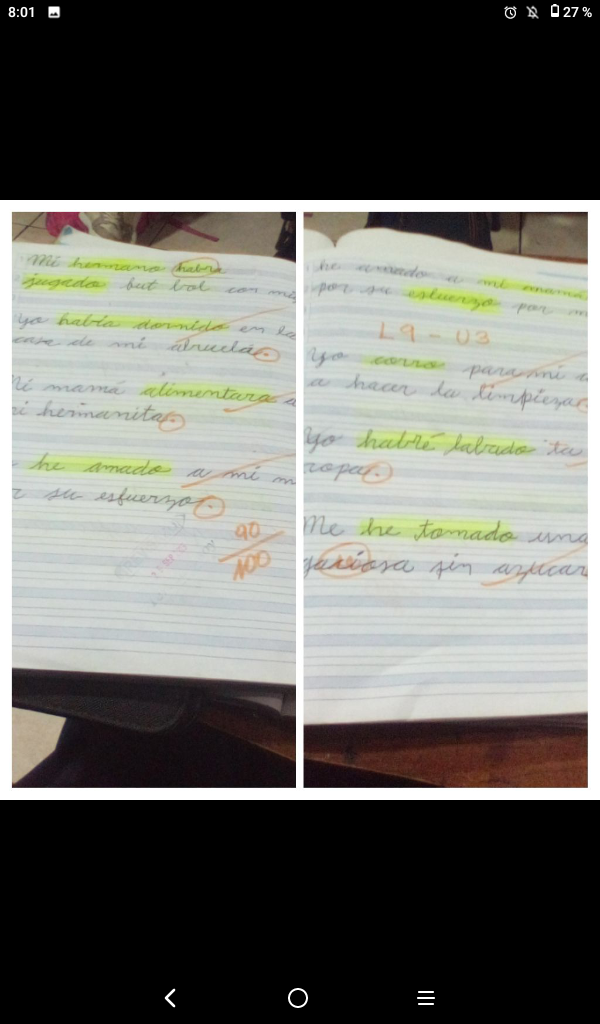 8:01
27 %
Mi hermano habra
jugado but bol con mi
yo había dornido en la
casa de mi abuela.
Mi mamá alimentara a
mi hermanita.
he amado a mi m
su esfuerzo.
90
100
he amado a mi mamá
por su esfuerzo por m
L9 - U3
Yo corro para mi
a hacer la limpieza
Yo habré labado tu
ropa.
Me he tomado una
gaviosa sin azucar